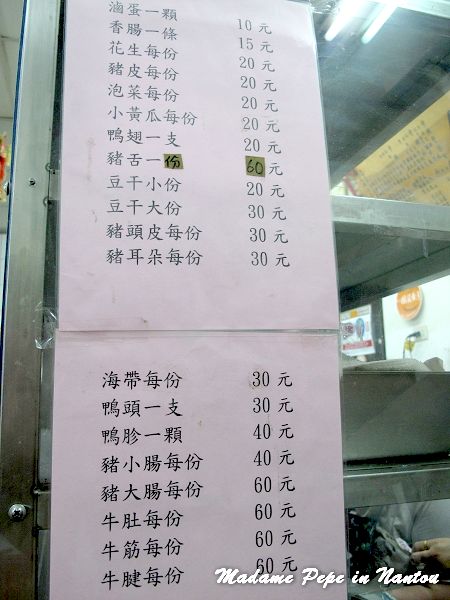 滷蛋一顆 10元
香腸一條 15元
花生每份 20元
豬皮每份 20元
泡菜每份 20元
小黃瓜每份 20元
鴨翅一支 20元
豬舌一份 60元
豆干小份 20元
豆干大份 30元
豬頭皮每份 30元
豬耳朵每份 30元
海帶每份 30元
鴨頭一支 30元
鴨胗一顆 40元
豬小腸每份 40元
豬大腸每份 60元
牛肚每份 60元
牛筋每份 60元
牛腱每份 60元
Madame Pepe in Nantou